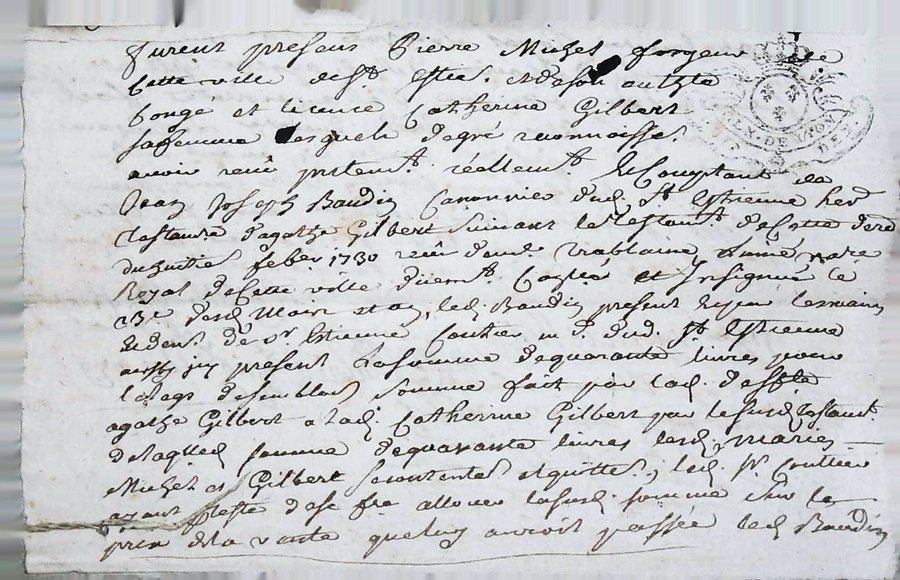 furent presens Pierre Michel forgeur de
Cette ville de St. Estie. et de son authté
Congé et licence Catherine Gilbert
sa femme lesquels de gré reconnoisse.
avoir reçû presentemt. réellemt. et Comptant de
Jean Joseph Baudin Canonnier dud. St. Estienne her.
testam.re d'agathe Gilbert Suivant le testamt. de Cette dere
du huitie. feber. 1730 reçû dud. notaire
Royal de Cette ville duëmt. Conle. et Insignué le
23e. desd. Mois et an, led. Baudin present et par les mains
et den. de Sr. Estienne Coulier md. dud. St. Estienne
aussy icy present La somme de quarante livres pour
le legs de semblable Somme fait par lad. deffte
agathe Gilbert a lad. Catherine Gilbert par le susd. testamt.
de laqlle. somme de quarante livres lesd. mariés
Michel et Gilbert se contentent et quittent, led. Sr. Coulier
ayant de se fre. allouer la susd. somme Sur le
prix de la vente que luy auroit passée led. Baudin